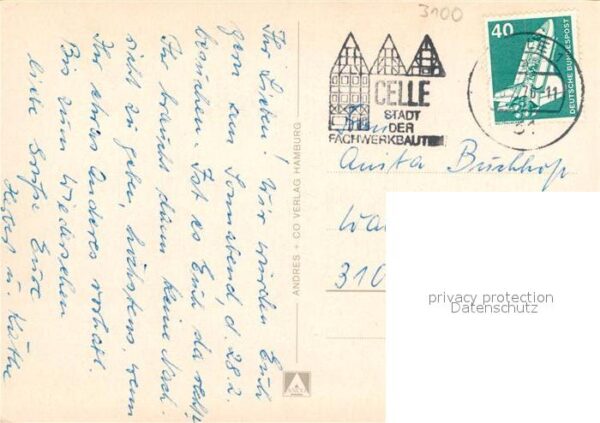 3100
Ihr Lieben! Wir würden Euch
gern am Sonnabend, d. 28.2.
besuchen. Ist es Euch da recht?
Ihr braucht dann keine Nach-
richt zu geben, höchstens, wenn
Ihr etwas anderes vorhabt.
Bis zum Wiedersehen
liebe Grüße Eure
Herbert u. Käthe
ANDRES + CO VERLAG HAMBURG
CELLE
STADT
DER
FACHWERKBAUTEN
40
DEUTSCHE BUNDESPOST
Anita Buchhop
310
privacy protection
Datenschutz